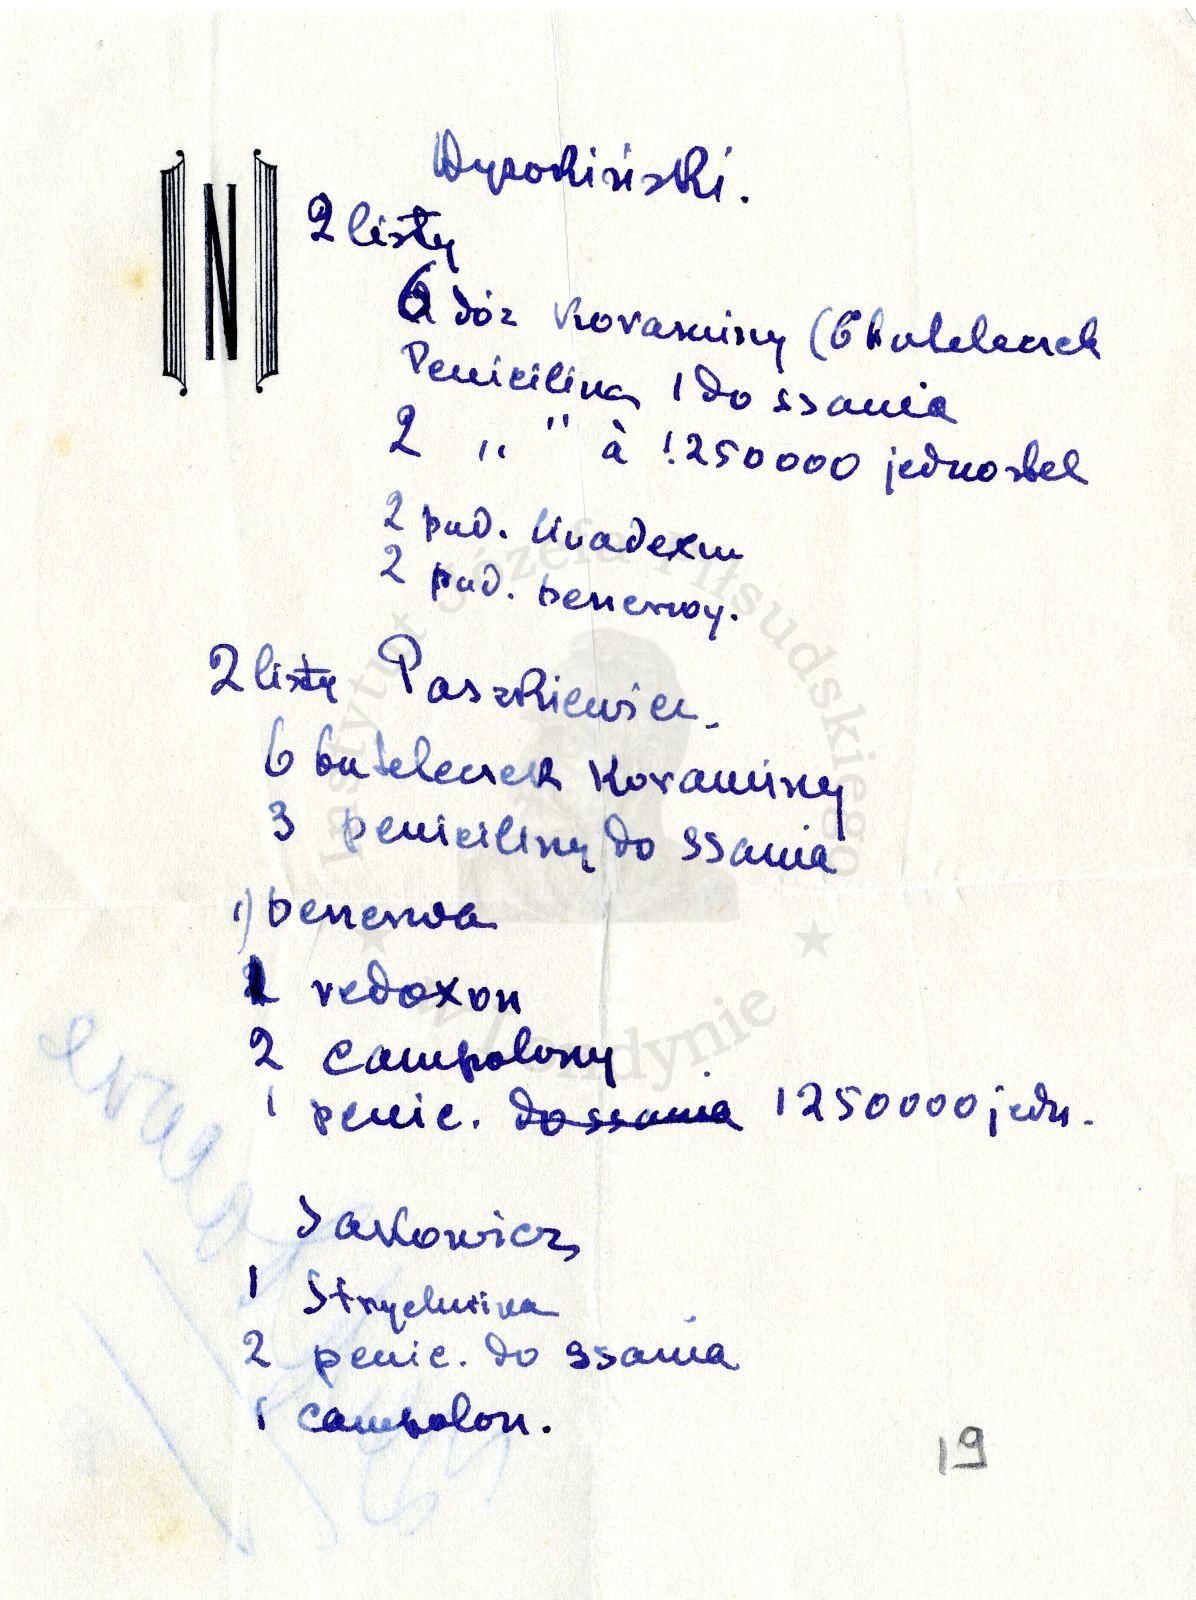 N
Wysokiński.
2 listy
6 dóz Koraminy (6 buteleczek
Penicilina 1 do ssania
2 " " à 1.250000 jednostek
2 pud.
2 pud. benerwy.
2 listy Paszkiewicz.
6 buteleczek Koraminy
3 peniciliny do ssania
1) benerwa
2 redoxon
2 campolony
1 penic. do ssania 1250000 jedn.
Sakowicz
1 Strychnina
2 penic. do ssania
1 campolon.
19
Instytut Józefa Piłsudskiego
w Londynie